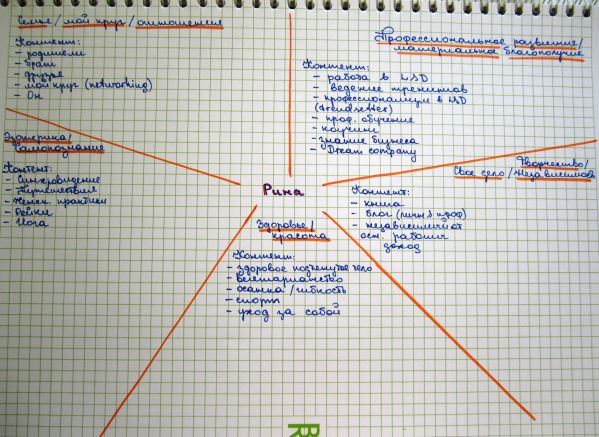 Семья / мой круг / отношения
Контент:
- родители
- брат
- друзья
- мой круг (networking)
- Он
Профессиональное развитие /
материальное благополучие
Контент:
- работа в LSD
- ведение тренингов
- профессионализм в LSD
(trendsetter)
- проф. обучение
- коучинг
- знание бизнеса
- Dream company
Эзотерика /
Самопознание
Контент:
- Путешествия
- Женск. практики
- Рейки
- Йога
Рина
Творчество /
Свое дело / Независимость
Контент:
- книга
- блог (личн и проф)
- независимый от
осн. работы
доход
Здоровье /
красота
Контент:
- здоровое подтянутое тело
- вегетарианство
- осанка / гибкость
- спорт
- уход за собой
R